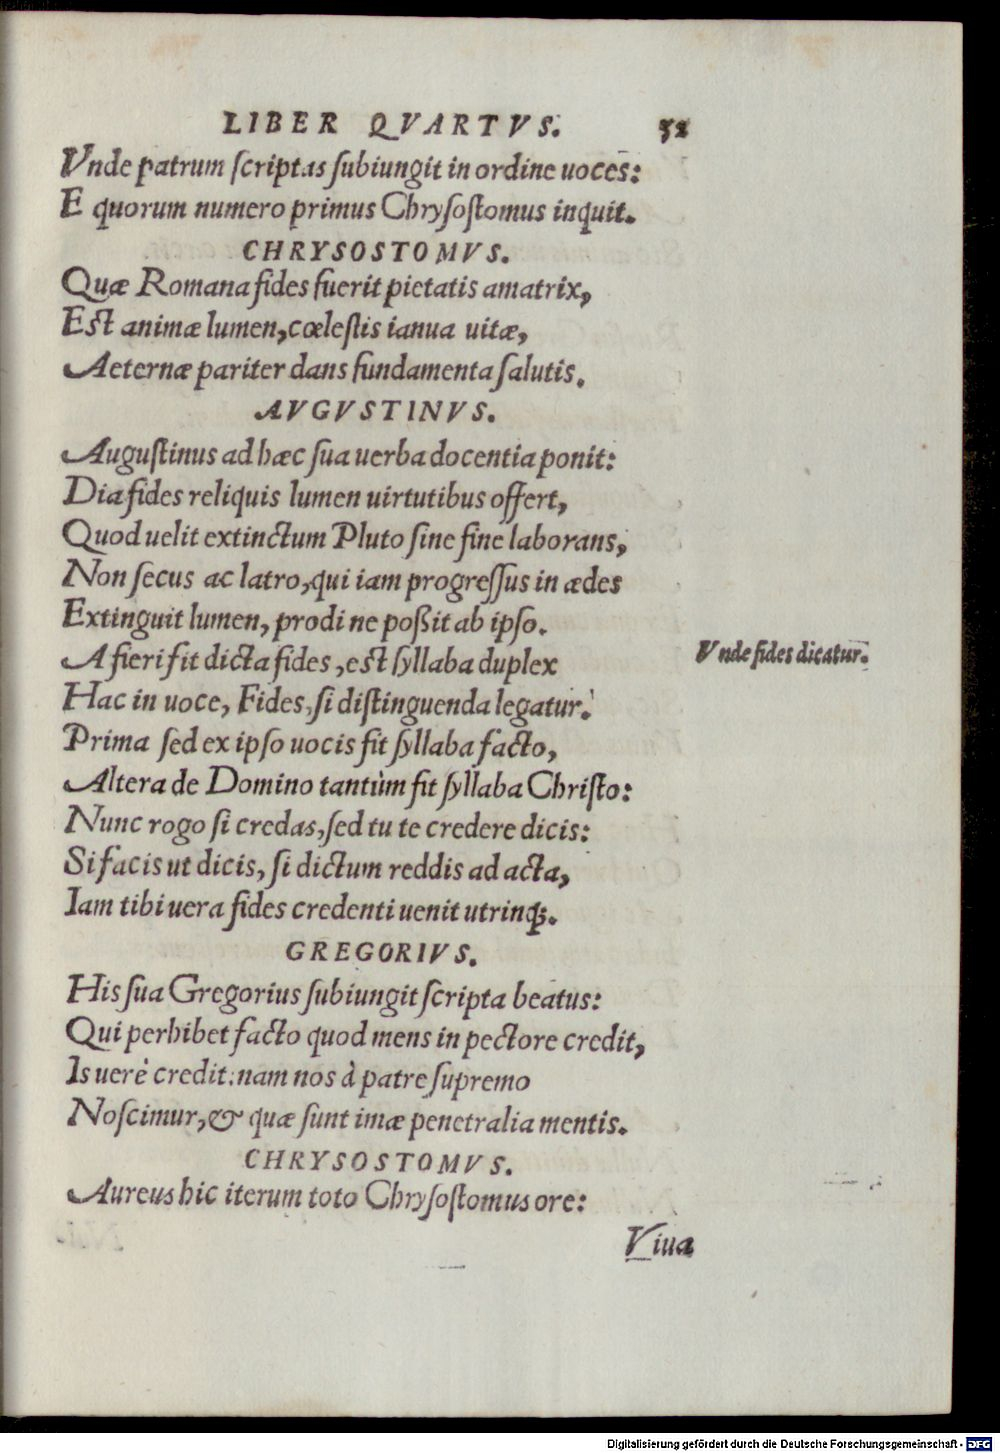 LIBER QVARTVS. 52
Vnde patrum scriptas subiungit in ordine uoces:
E quorum numero primus Chrysostomus inquit.
CHRYSOSTOMVS.
Quæ Romana fides fuerit pietatis amatrix,
Est animæ lumen, cœlestis ianua uitæ,
Aeternæ pariter dans fundamenta salutis.
AVGVSTINVS.
Augustinus ad hæc sua uerba docentia ponit:
Dia fides reliquis lumen uirtutibus offert,
Quod uelit extinctum Pluto sine fine laborans,
Non secus ac latro, qui iam progressus in ædes
Extinguit lumen, prodi ne poßit ab ipso.
A fieri fit dicta fides, est syllaba duplex
Vnde fides dicatur.
Hac in uoce, Fides, si distinguenda legatur.
Prima sed ex ipso uocis fit syllaba facto,
Altera de Domino tantùm fit syllaba Christo:
Nunc rogo si credas, sed tu te credere dicis:
Si facis ut dicis, si dictum reddis ad acta,
Iam tibi uera fides credenti uenit utrinq;.
GREGORIVS.
His sua Gregorius subiungit scripta beatus:
Qui perhibet facto quod mens in pectore credit,
Is uerè credit: nam nos à patre supremo
Noscimur, & quæ sunt imæ penetralia mentis.
CHRYSOSTOMVS.
Aureus hic iterum toto Chrysostomus ore:
Viua
Digitalisierung gefördert durch die Deutsche Forschungsgemeinschaft - DFG